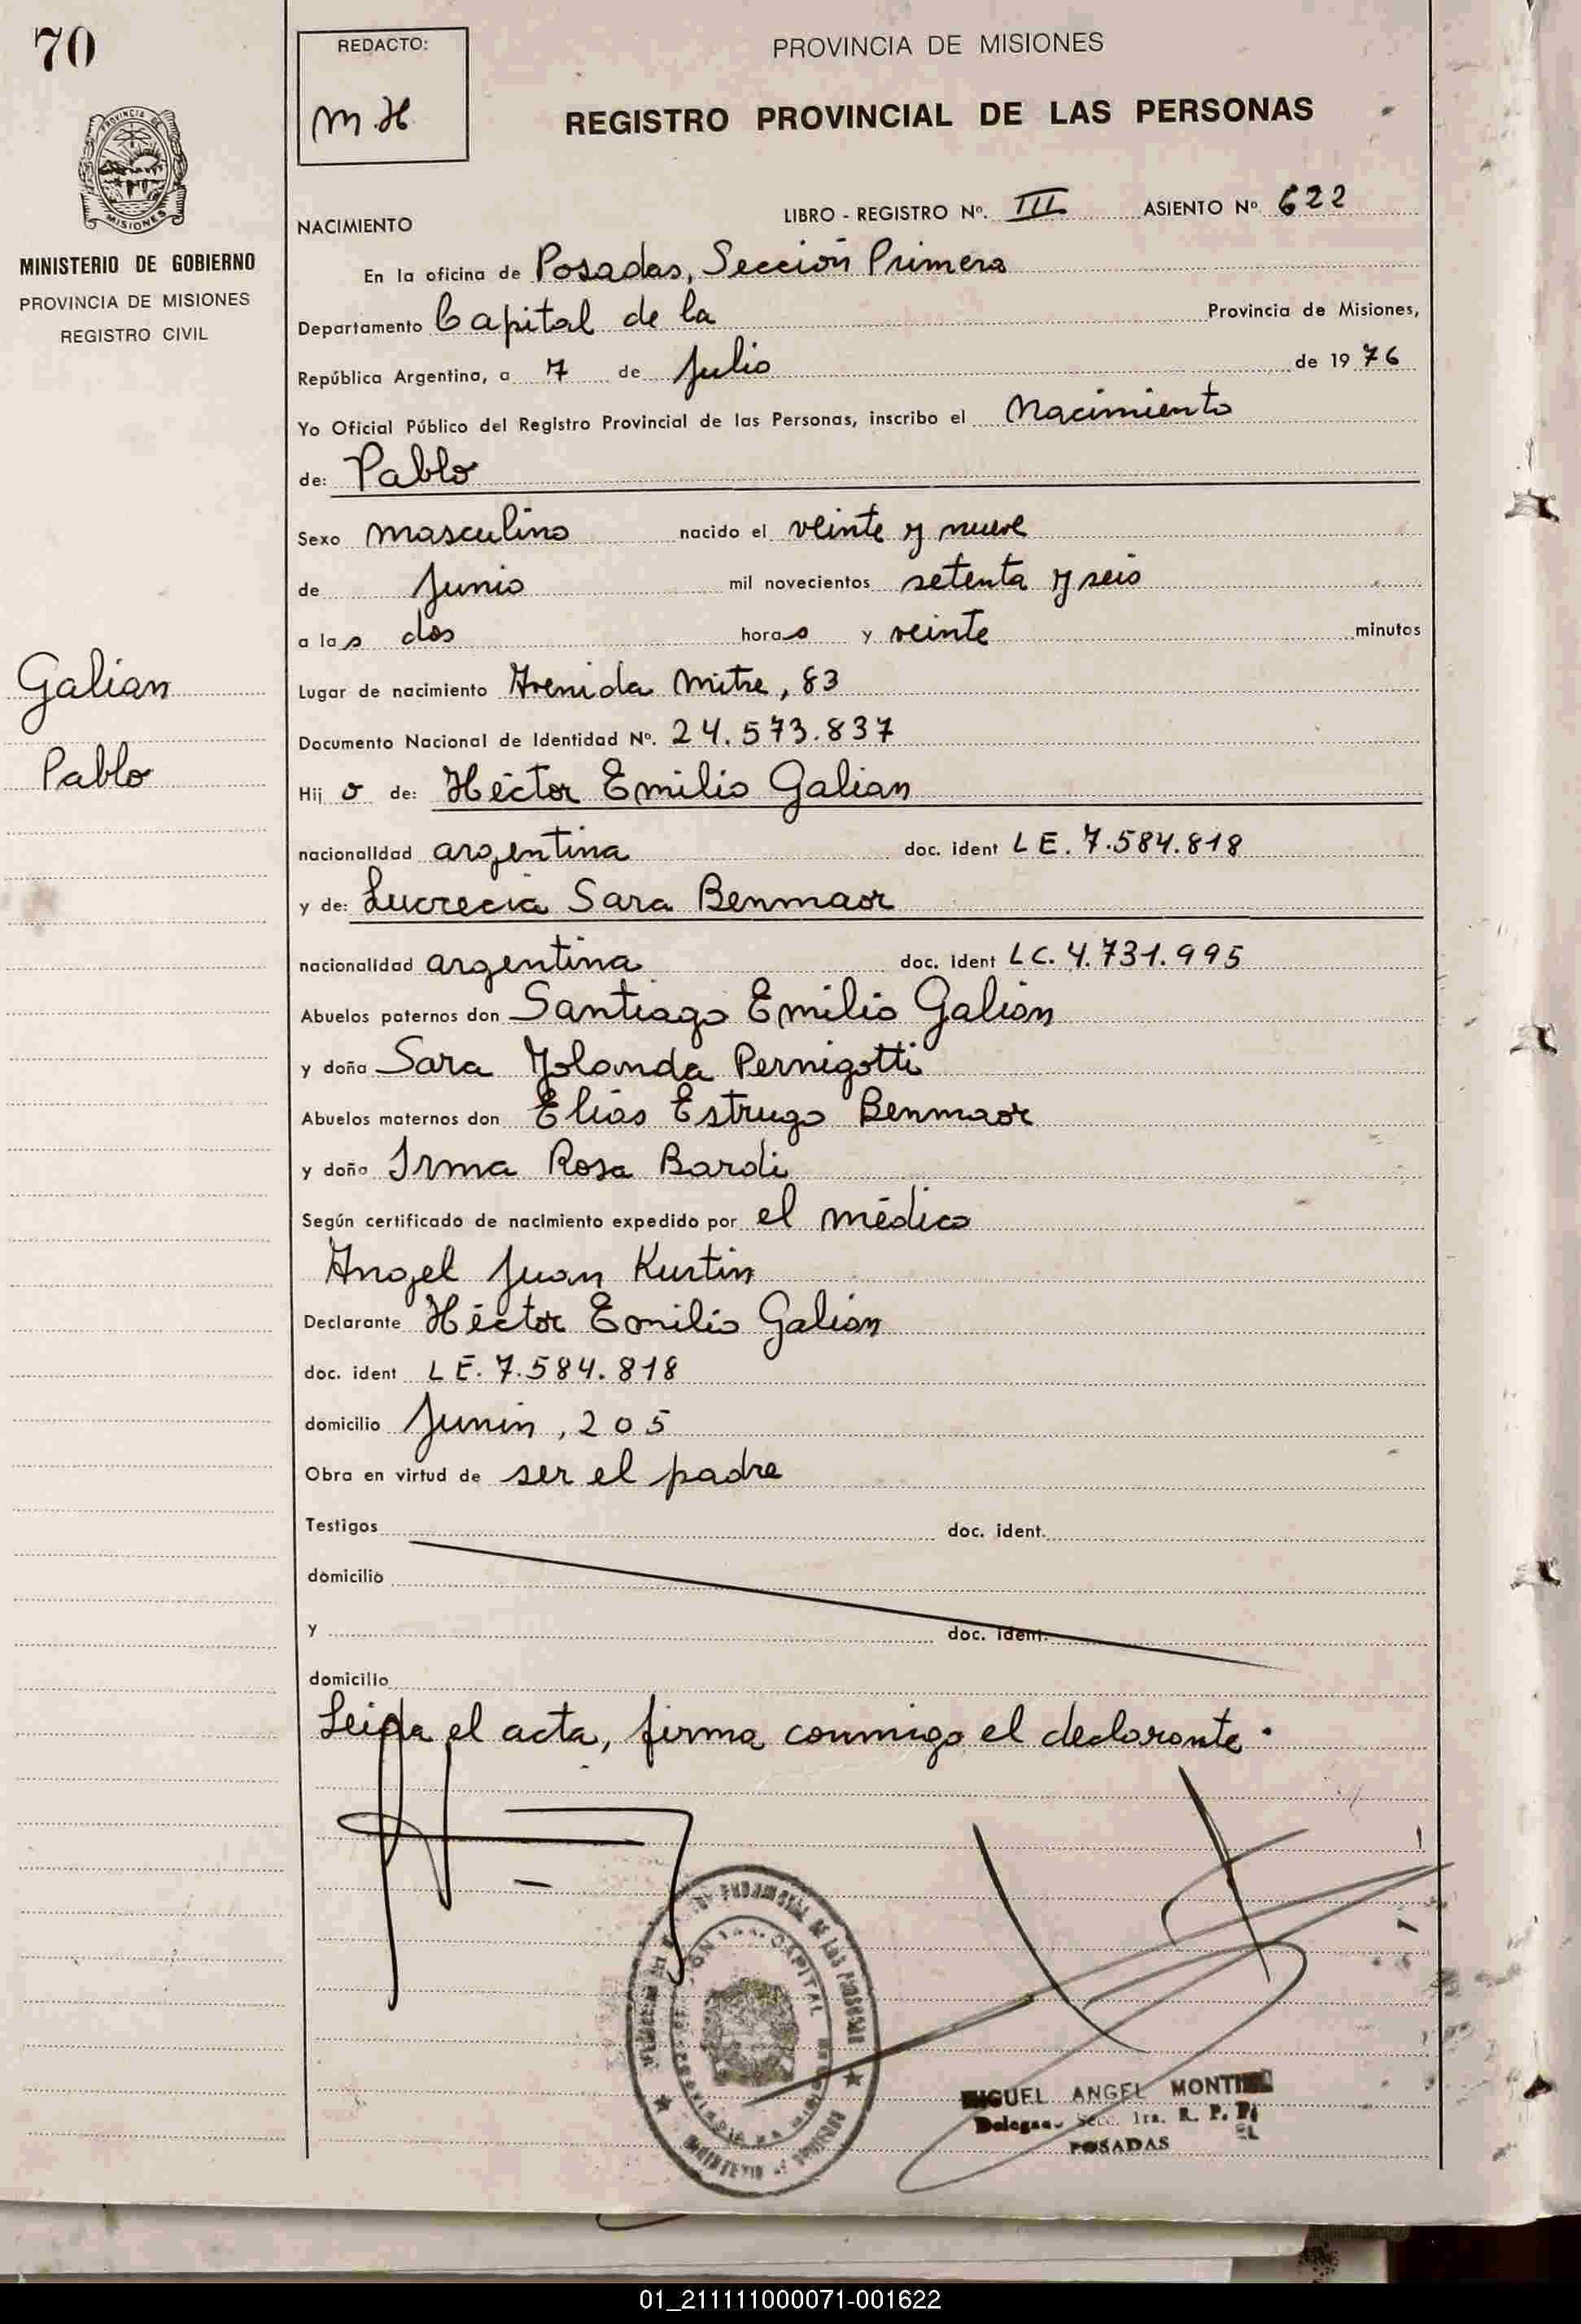 70
REDACTO:
M.H
PROVINCIA DE MISIONES
REGISTRO PROVINCIAL DE LAS PERSONAS
MISIONES
MINISTERIO DE GOBIERNO
PROVINCIA DE MISIONES
REGISTRO CIVIL
Galian
Pablo
LIBRO - REGISTRO Nº. III ASIENTO Nº 622
NACIMIENTO
En la oficina de Posadas, Sección Primera
Departamento Capital de la Provincia de Misiones,
República Argentina, a 7 de Julio de 1976
Yo Oficial Público del Registro Provincial de las Personas, inscribo el Nacimiento
de: Pablo
Sexo masculino nacido el veinte y nueve
de Junio mil novecientos setenta y seis
a las dos horas y veinte minutos
Lugar de nacimiento Avenida Mitre, 83
Documento Nacional de Identidad Nº. 24.573.837
Hijo de: Héctor Emilio Galian
nacionalidad argentina doc. ident LE. 7.584.818
y de: Lucrecia Sara Benmaor
nacionalidad argentina doc. ident LC. 4.731.995
Abuelos paternos don Santiago Emilio Galián
y doña Sara Yolanda Pernigotti
Abuelos maternos don Elías Estrugo Benmaor
y doña Irma Rosa Bardi
Según certificado de nacimiento expedido por el médico
Angel Juan Kurtin
Declarante Héctor Emilio Galián
doc. ident LE. 7.584.818
domicilio Junín, 205
Obra en virtud de ser el padre
Testigos doc. ident.
domicilio
y doc. ident.
domicilio
Leída el acta, firma conmigo el declarante.
CAPITAL
MIGUEL ANGEL MONTIEL
Secc. 1ra. R. P.
POSADAS
01_211111000071-001622